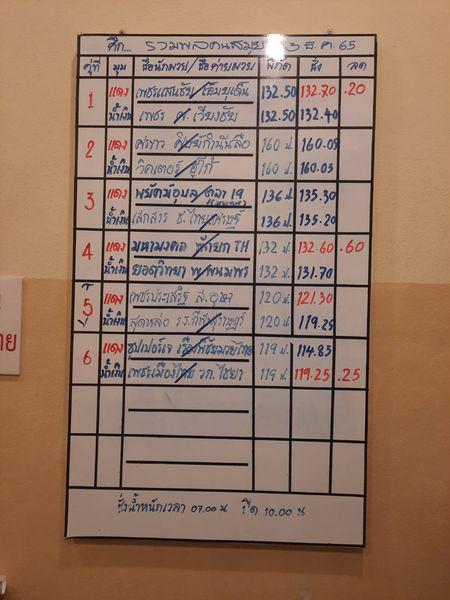 ศึก... รวมพลคนสมุย 3 ธ.ค. 65
คู่ที่ มุม ชื่อนักมวย/ชื่อค่ายมวย พิกัด ชั่ง ลด
1 แดง เพชรแสนชัย/ 132.50 132.70 .20
น้ำเงิน เพชร ศ.เวียงชัย 132.50 132.40
2 แดง กำนันลือ 160 ป. 160.05
น้ำเงิน วิคเตอร์/ฮูโก้ 160 ป. 160.05
3 แดง พยัคฆ์อุบล/ 19 136 ป. 135.30
น้ำเงิน เสกสรร 136 ป. 135.20
4 แดง มหามงคล TH 132 ป. 132.60 .60
น้ำเงิน ยอดวิทยา พนมพร 132 ป. 131.70
5 แดง เพชรประเสริฐ ส. 120 ป. 121.30
น้ำเงิน สุดหล่อ ร.ร.กีฬา 120 ป. 119.25
6 แดง ซุปเปอร์เจ 119 ป. 114.85
น้ำเงิน เพชรเมืองไทย วก.ไชยา 119 ป. 119.25 .25
ชั่งน้ำหนักเวลา 07.00 น ปิด 10.00 น